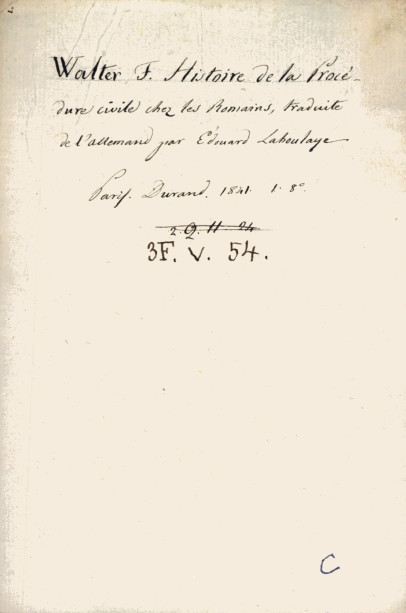 Walter F. Histoire de la Procé-
dure civile chez les Romains, traduite
de l'allemand par Édouard Laboulaye
Paris. Durand. 1841. 1. 8°.
2. Q. 11. 24
3F. V. 54.
C